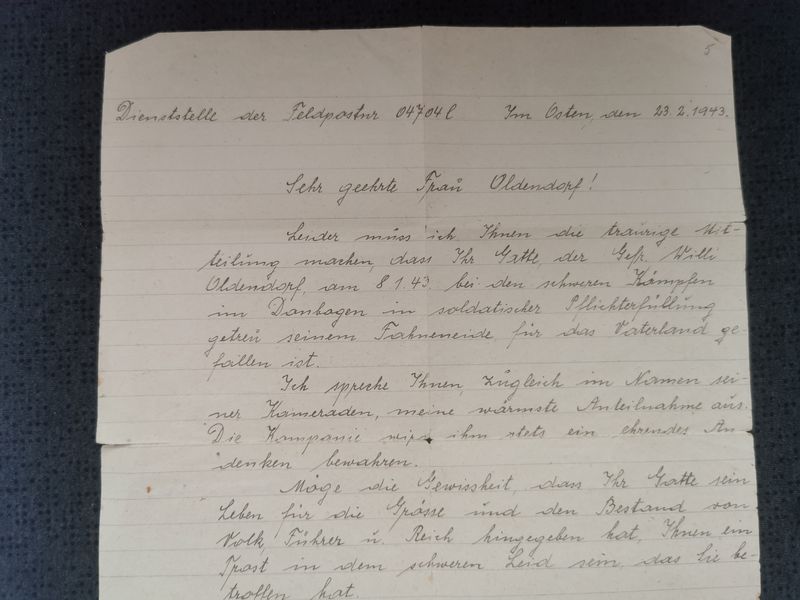 5
Dienststelle der Feldpostnr 04704C Im Osten, den 23.2.1943.
Sehr geehrte Frau Oldendorf!
Leider muss ich Ihnen die traurige Mit-
teilung machen, dass Ihr Gatte, der Gefr. Willi
Oldendorf, am 8.1.43. bei den schweren Kämpfen
im Donbogen in soldatischer Pflichterfüllung
getreu seinem Fahneneide, für das Vaterland ge-
fallen ist.
Ich spreche Ihnen, zugleich im Namen sei-
ner Kameraden, meine wärmste Anteilnahme aus.
Die Kompanie wird ihm stets ein ehrendes An-
denken bewahren.
Möge die Gewissheit, dass Ihr Gatte sein
Leben für die Grösse und den Bestand von
Volk, Führer u. Reich hingegeben hat, Ihnen ein
Trost in dem schweren Leid sein, das Sie be-
troffen hat.